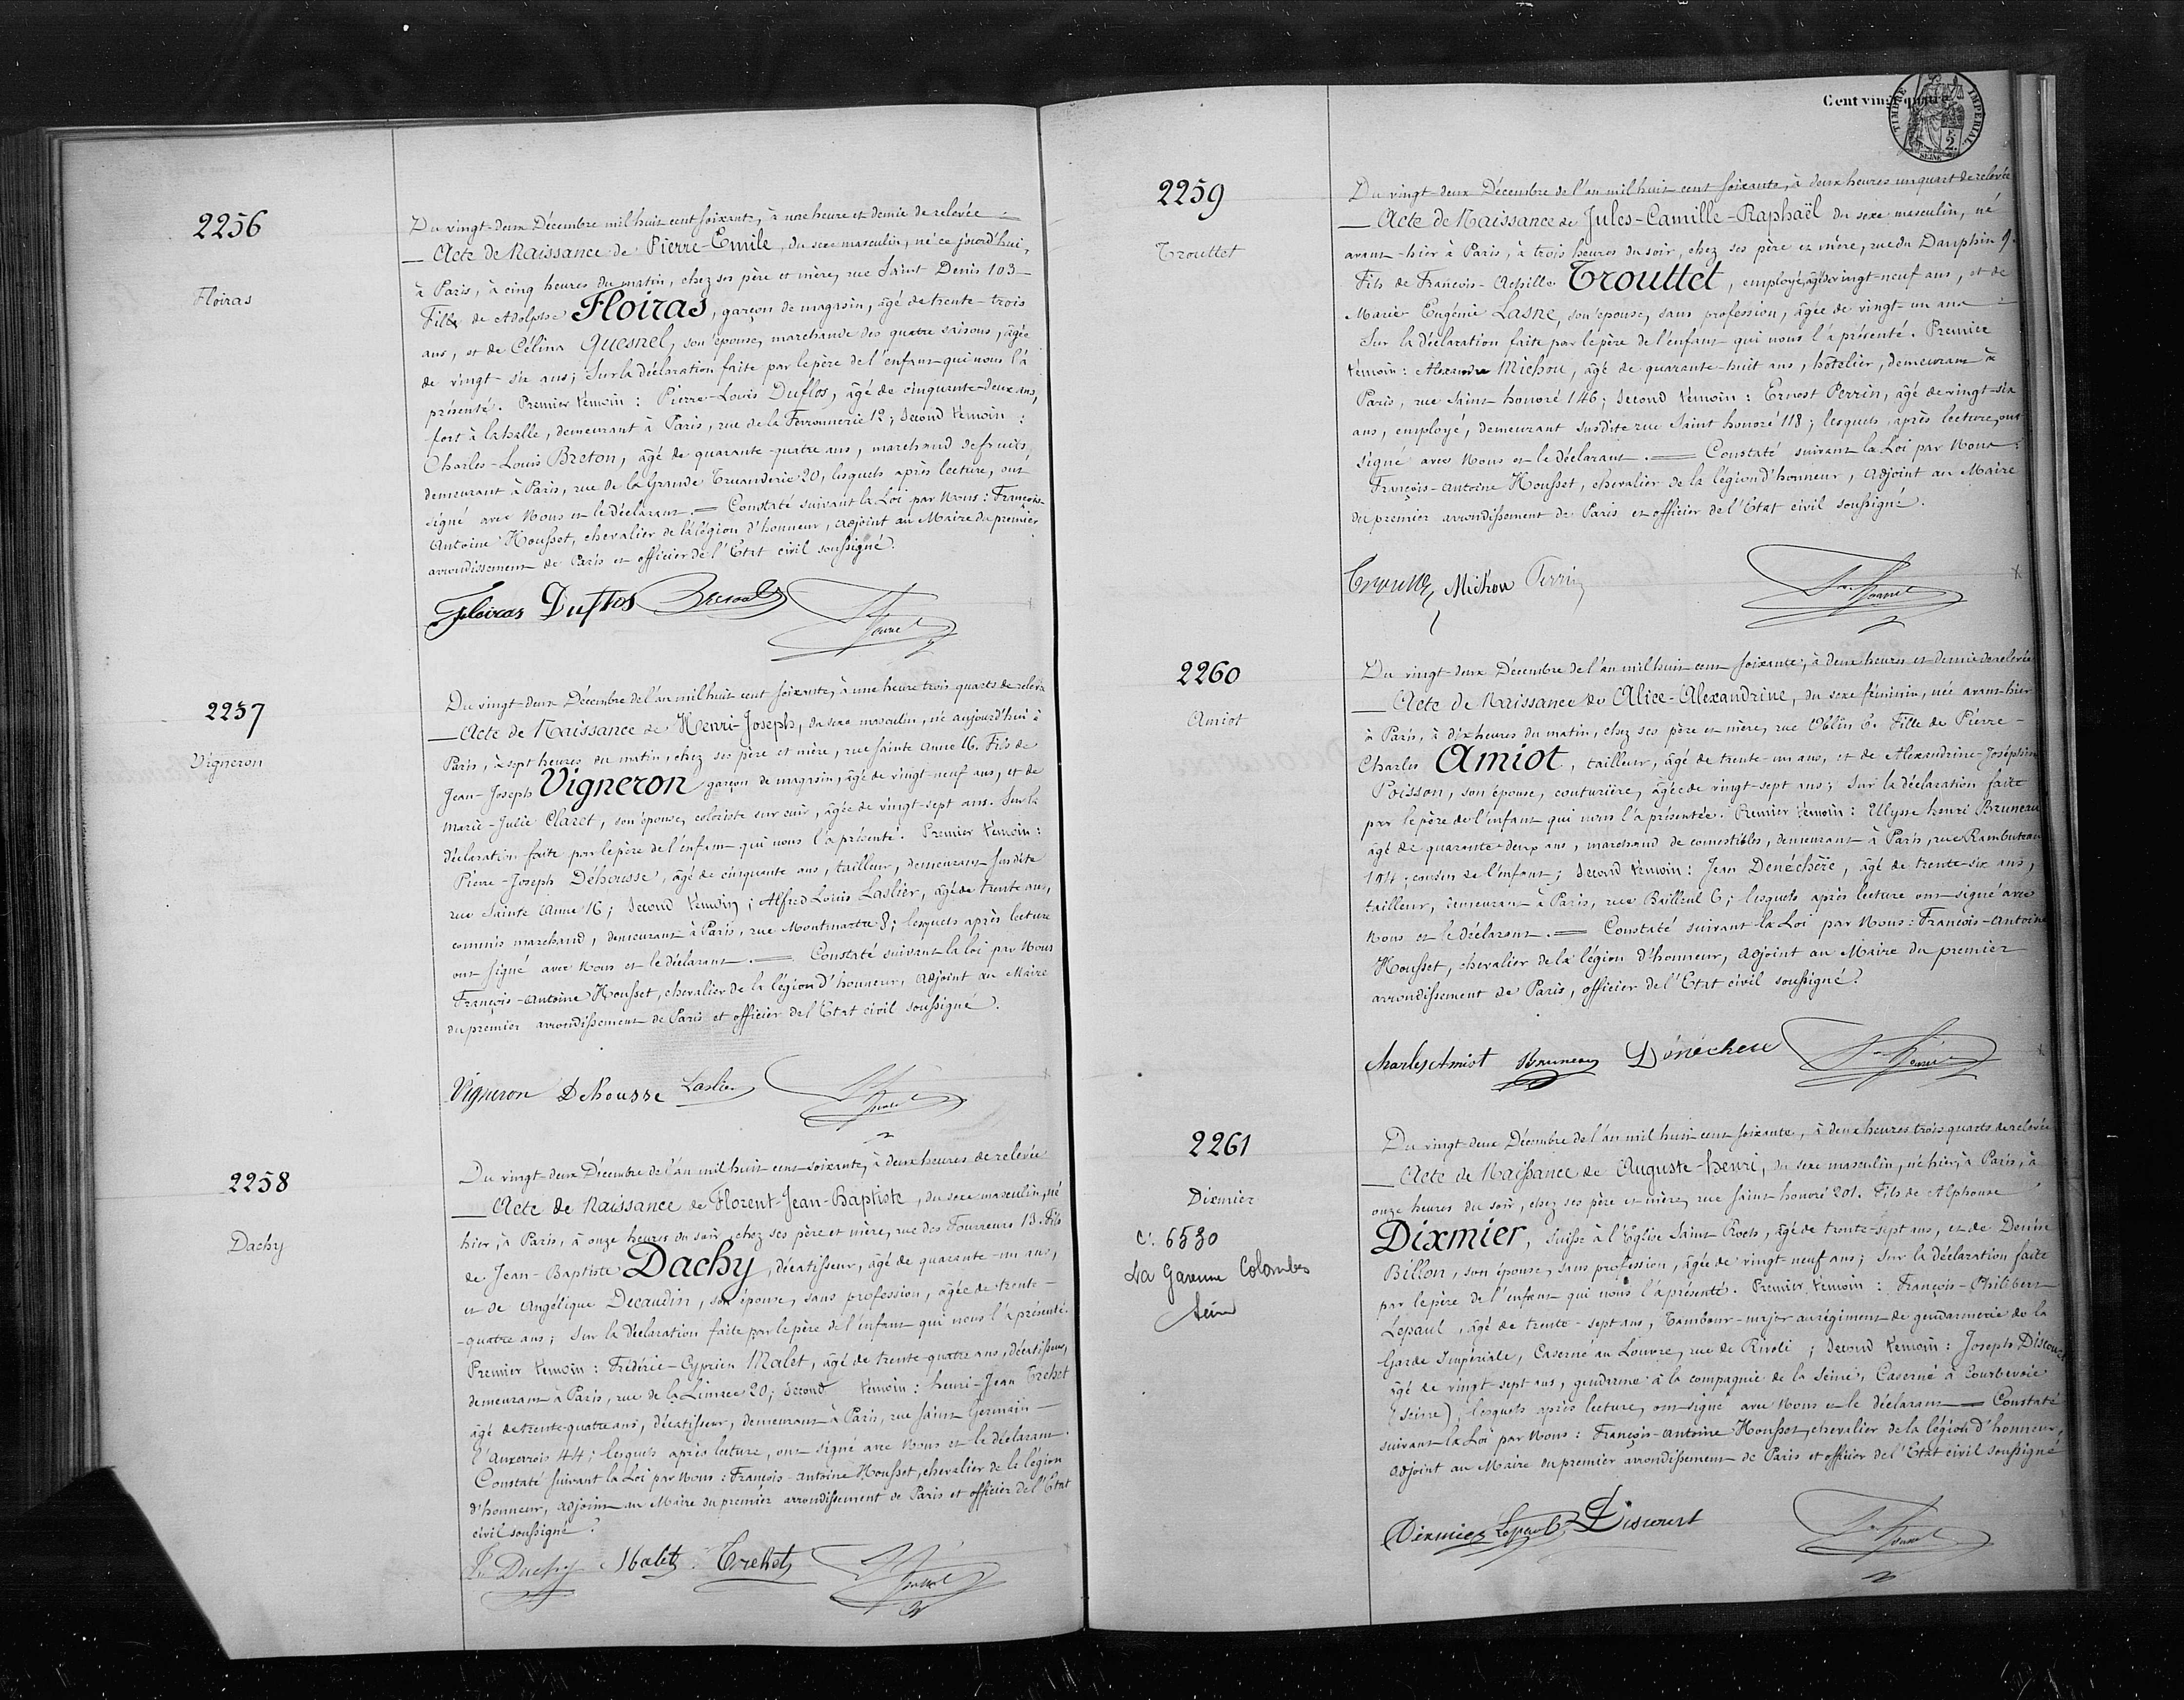 2256
Floiras
Du vingt-deux Décembre mil huit cent soixante, à une heure et demie de relevée
Acte de Naissance de Pierre-Emile, du sexe masculin, né ce jourd'hui,
à Paris, à cinq heures du matin, chez ses père et mère, rue Saint Denis 103
Fils de Adolphe Floiras, garçon de magasin, âgé de trente-trois
ans, et de Célina Quesnel, son épouse, marchande des quatre saisons, âgée
de vingt-six ans; Sur la déclaration faite par le père de l'enfant qui nous l'a
présenté. Premier témoin : Pierre-Louis Duflos, âgé de cinquante-deux ans,
fort à la halle, demeurant à Paris, rue de la Ferronnerie 12; Second témoin :
Charles-Louis Breton, âgé de quarante-quatre ans, marchand de fruits,
demeurant à Paris, rue de la Grande Truanderie 20, lesquels après lecture, ont
signé avec Nous et le déclarant. = Constaté suivant la Loi par Nous : François-
Antoine Housset, chevalier de la légion d'honneur, adjoint au Maire du premier
arrondissement de Paris et officier de l'Etat civil soussigné.
Floiras Duflos
2257
Vigneron
Du vingt-deux Décembre de l'an mil huit cent soixante, à une heure trois quarts de relevée
Acte de Naissance de Henri-Joseph, du sexe masculin, né aujourd'hui à
Paris, à sept heures du matin, chez ses père et mère, rue Sainte Anne 16. Fils de
Jean-Joseph Vigneron garçon de magasin, âgé de vingt-neuf ans, et de
Marie-Julie Claret, son épouse, coloriste sur cuir, âgée de vingt-sept ans. Sur la
déclaration faite par le père de l'enfant qui nous l'a présenté. Premier témoin :
Pierre-Joseph Dehousse, âgé de cinquante ans, tailleur, demeurant susdite
rue Sainte Anne 16; Second témoin; Alfred Louis Laslier, âgé de trente ans,
commis marchand, demeurant à Paris, rue Montmartre 8; lesquels après lecture
ont signé avec Nous et le déclarant. = Constaté suivant la loi par Nous
François-Antoine Housset, chevalier de la légion d'honneur, adjoint au Maire
du premier arrondissement de Paris et officier de l'Etat civil soussigné.
Vigneron DeHousse Laslier
2258
Dachy
Du vingt-deux Décembre de l'an mil huit cent-soixante, à deux heures de relevée
Acte de Naissance de Florent-Jean-Baptiste, du sexe masculin, né
hier, à Paris, à onze heures du soir, chez ses père et mère, rue des Fourreurs 13. Fils
de Jean-Baptiste Dachy, décatisseur, âgé de quarante-un ans,
et de Angélique Decaudin, son épouse, sans profession, âgée de trente-
-quatre ans; Sur la déclaration faite par le père de l'enfant qui nous l'a présenté.
Premier témoin : Frédéric-Cyprien Malet, âgé de trente-quatre ans, décatisseur,
demeurant à Paris, rue de la Limace 20; Second témoin : henri-Jean Trehet
âgé de trente-quatre ans, décatisseur, demeurant à Paris, rue Saint Germain-
l'Auxerrois 44; lesquels après lecture, ont signé avec Nous et le déclarant.
Constaté suivant la Loi par Nous : François-Antoine Housset, chevalier de la légion
d'honneur, adjoint au Maire du premier arrondissement de Paris et officier de l'Etat
civil soussigné.
Dachy Malet Trehet
Cent vingt quatre
TIMBRE IMPERIAL
2.
SEINE
2259
Trouttet
Du vingt-deux Décembre de l'an mil huit cent soixante, à deux heures un quart de relevée
Acte de Naissance de Jules-Camille-Raphaël du sexe masculin, né
avant-hier à Paris, à trois heures du soir, chez ses père et mère, rue du Dauphin 9.
Fils de François-Achille Trouttet, employé, âgé de vingt-neuf ans, et de
Marie Eugénie Lasne, son épouse, sans profession, âgée de vingt-un ans
Sur la déclaration faite par le père de l'enfant qui nous l'a présenté. Premier
témoin : Alexandre Michou, âgé de quarante-huit ans, hôtelier, demeurant à
Paris, rue Saint honoré 146; Second témoin : Ernest Perrin, âgé de vingt-six
ans, employé, demeurant susdite rue Saint honoré 118; lesquels après lecture, ont
signé avec Nous et le déclarant. = Constaté suivant la Loi par Nous :
François-Antoine Housset, chevalier de la légion d'honneur, adjoint au Maire
du premier arrondissement de Paris et officier de l'Etat civil soussigné.
Michou Perrin
2260
Amiot
Du vingt-deux Décembre de l'an mil huit cent soixante, à deux heures et demie de relevée
Acte de Naissance de Alice-Alexandrine, du sexe féminin, née avant-hier
à Paris, à dix heures du matin, chez ses père et mère, rue Oblin 6. Fille de Pierre-
Charles Amiot, tailleur, âgé de trente-un ans, et de Alexandrine-Joséphine
Poisson, son épouse, couturière, âgée de vingt-sept ans; Sur la déclaration faite
par le père de l'enfant qui nous l'a présentée. Premier témoin : Ulysse henri Bruneau
âgé de quarante-deux ans, marchand de comestibles, demeurant à Paris, rue Rambuteau
104; cousin de l'enfant; Second témoin : Jean Denéchère, âgé de trente-six ans,
tailleur, demeurant à Paris, rue Bailleul 6; lesquels après lecture ont signé avec
Nous et le déclarant. = Constaté suivant la Loi par Nous : François-Antoine
Housset, chevalier de la légion d'honneur, adjoint au Maire du premier
arrondissement de Paris, officier de l'Etat civil soussigné.
Charles Amiot Bruneau Dénéchere
2261
Dixmier
C. 6530
La Garenne Colombes
Seine
Du vingt-deux Décembre de l'an mil huit cent soixante, à deux heures trois quarts de relevée
Acte de Naissance de Auguste-henri, du sexe masculin, né hier, à Paris, à
onze heures du soir, chez ses père et mère, rue Saint-honoré 201. Fils de Alphonse
Dixmier, Suisse à l'Eglise Saint-Roch, âgé de trente-sept ans, et de Denise
Billon, son épouse, sans profession, âgée de vingt neuf ans; Sur la déclaration faite
par le père de l'enfant qui nous l'a présenté. Premier témoin : François-Philibert
Lepaul, âgé de trente-sept ans, Tambour-major au régiment de gendarmerie de la
Garde Impériale, Caserné au Louvre, rue de Rivoli; Second témoin : Joseph Discourt
âgé de vingt-sept ans, gendarme à la compagnie de la Seine, Caserné à Courbevoie
(Seine), lesquels après lecture, ont signé avec Nous et le déclarant = Constaté
suivant la Loi par Nous : François-Antoine Housset, chevalier de la légion d'honneur,
adjoint au Maire du premier arrondissement de Paris et officier de l'Etat civil soussigné
Dixmier Lepaul Discourt